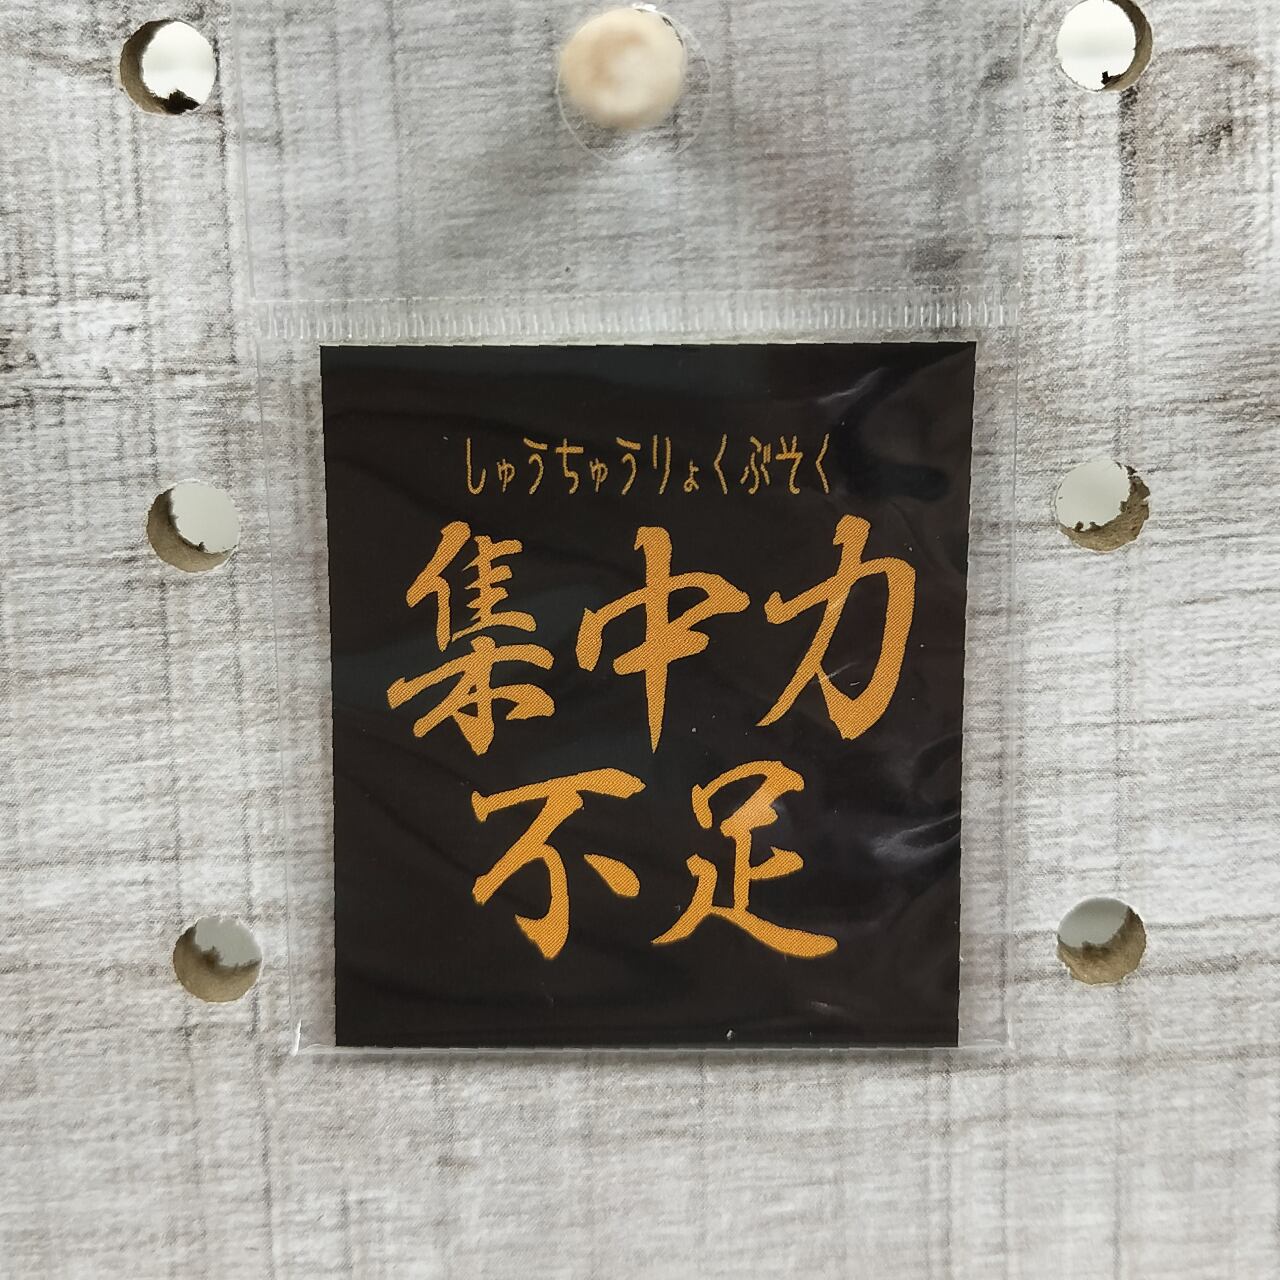 しゅうちゅうりょくぶそく
集中力
不足